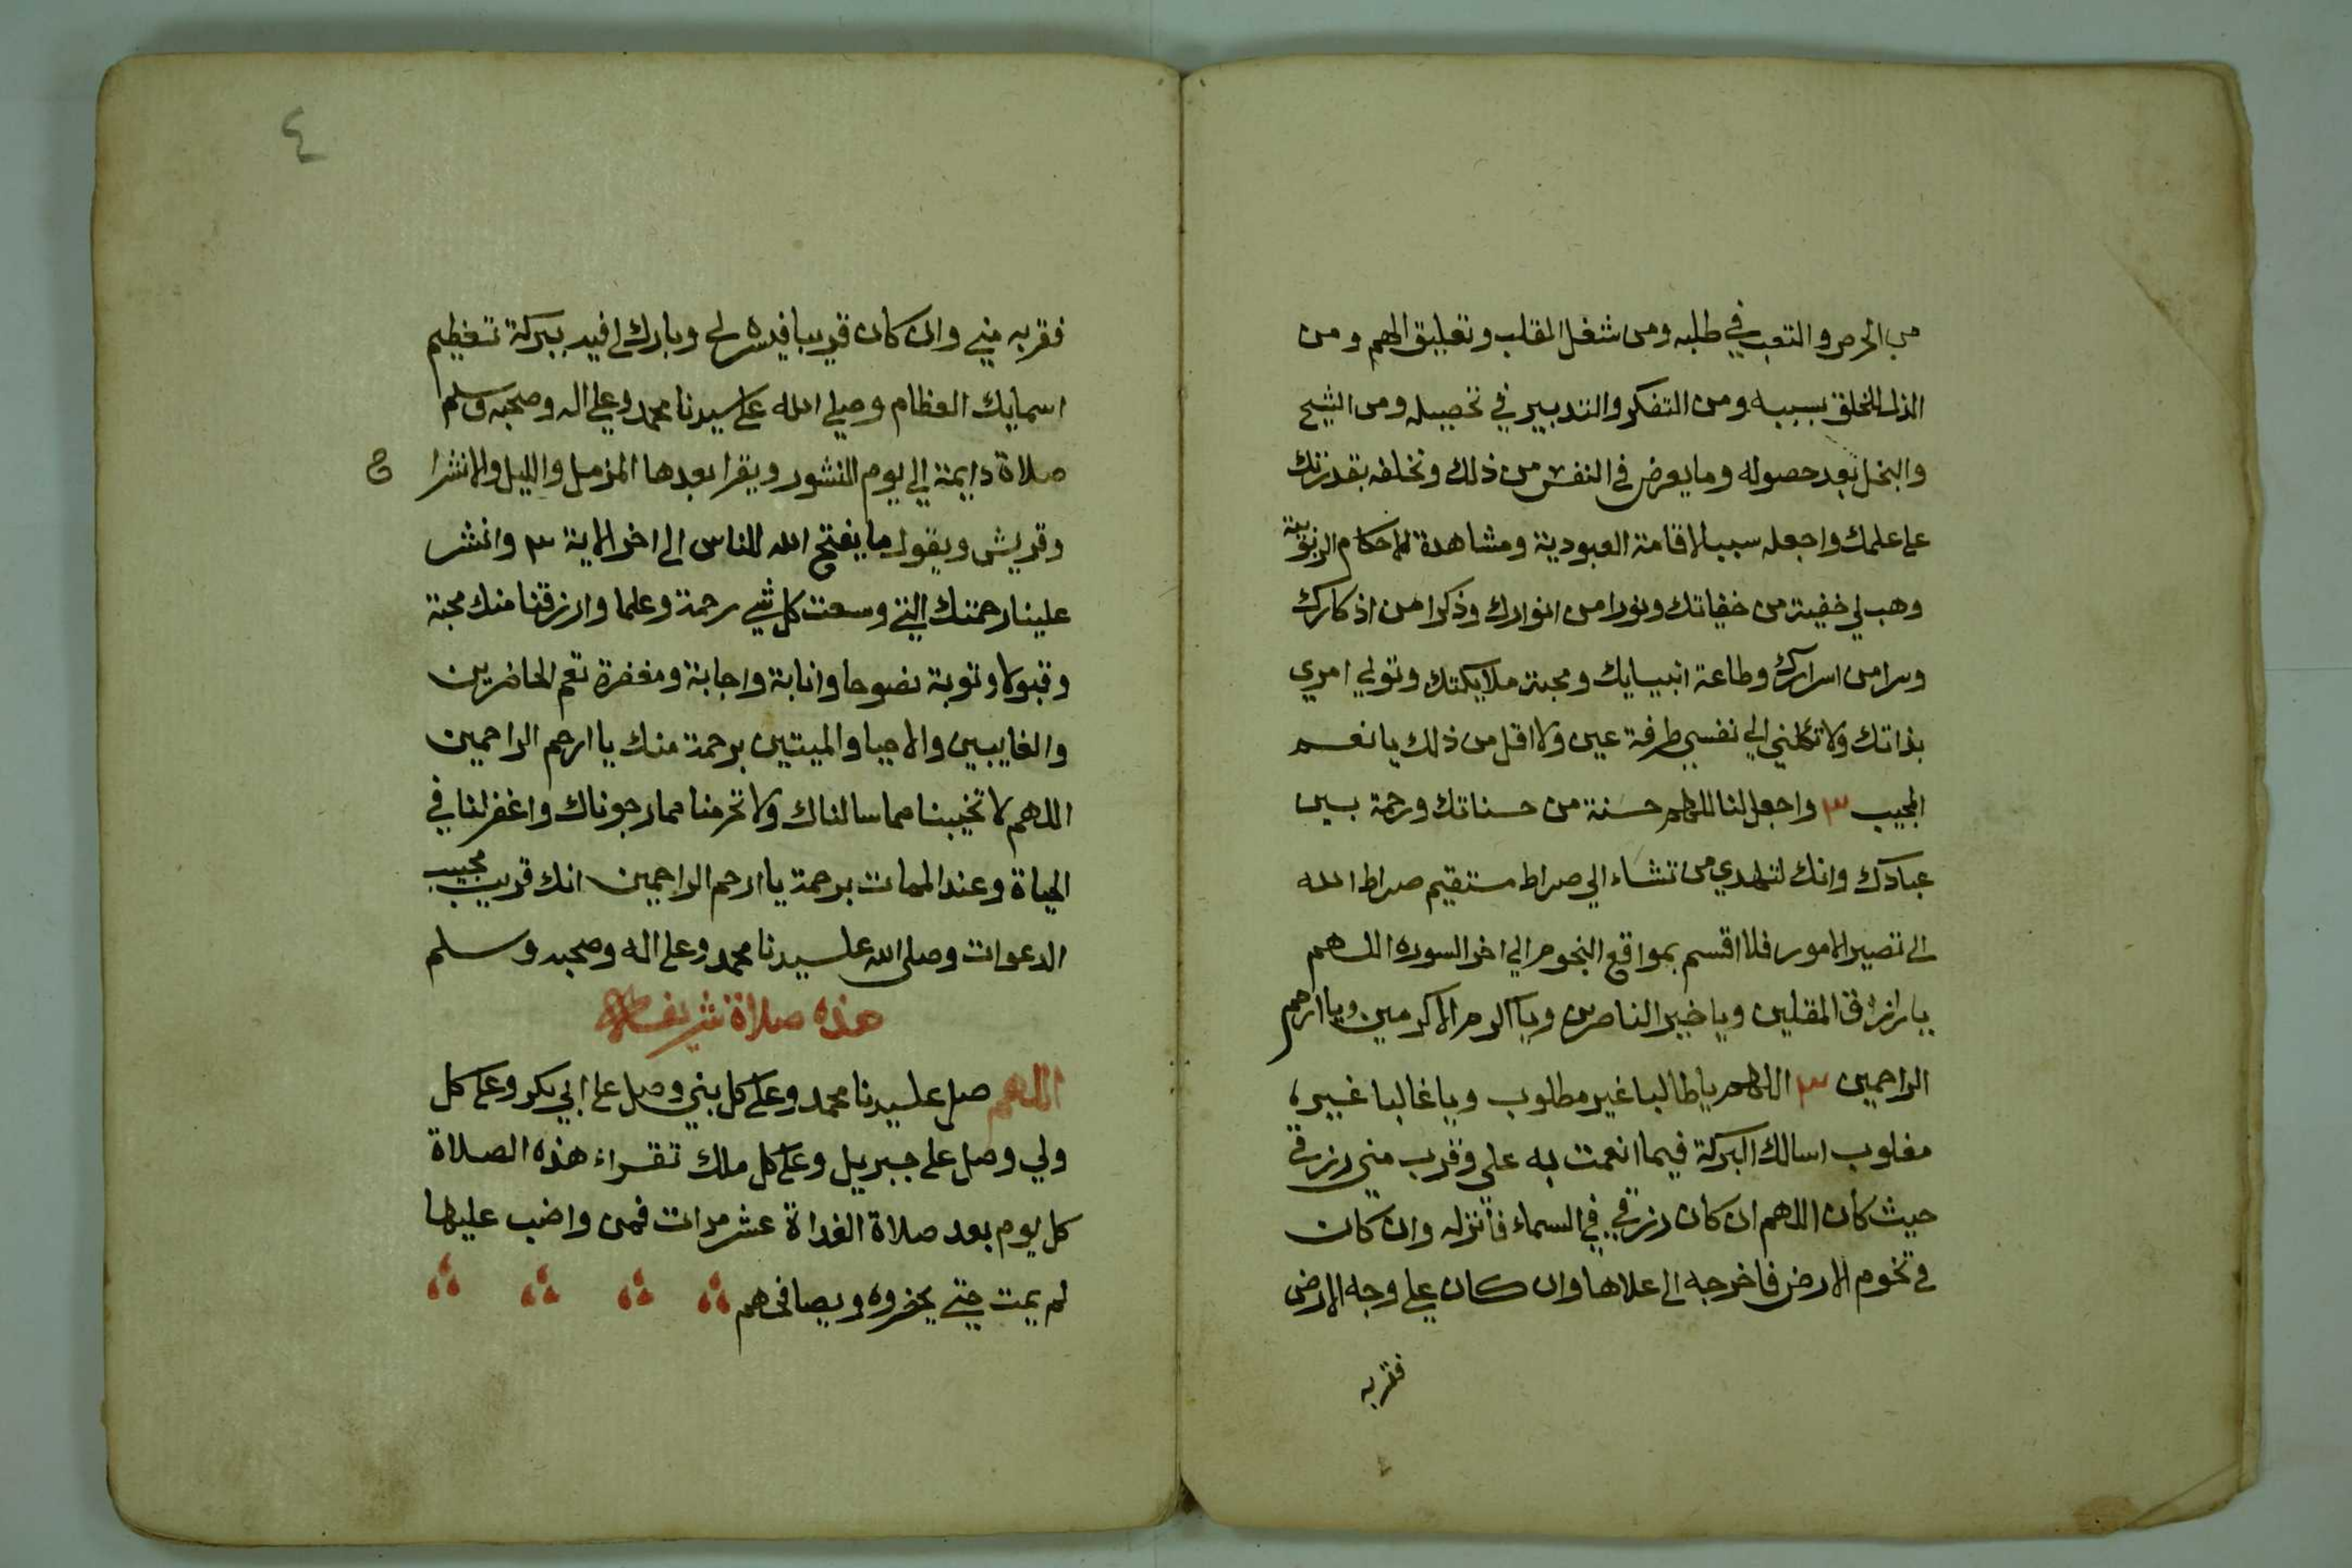 من الحرص والتعب في طلبه ومن شغل القلب وتعليق الهم ومن
الذل للخلق بسببه ومن التفكر والتدبير في تحصيله ومن الشح
والبخل بعد حصوله وما يعرض في النفس من ذلك وتخلفه بقدرتك
على علمك واجعله سببا لاقامة العبودية ومشاهدة لاحكام الربوبية
وهب لي خفية من خفياتك ونورا من انوارك وذكرا من اذكارك
وسرا من اسرارك وطاعة انبيايك ومحبة ملايكتك وتولي امري
بذاتك ولا تكلني الي نفسي طرفة عين ولا اقل من ذلك يا نعم
المجيب ٣ واجعل لنا اللهم حسنة من حسناتك ورحمة بين
عبادك وانك لتهدي من تشاء الي صراط مستقيم صراط الله
الى تصير الامور فلا اقسم بمواقع النجوم الي اخر السوره اللهم
يا رازق المقلين ويا خير الناصرين ويا اكرم الاكرمين ويا ارحم
الراحمين ٣ اللهم يا طالبا غير مطلوب ويا غالبا غير
مغلوب اسالك البركة فيما انعمت به علي وقرب مني رزقي
حيث كان اللهم ان كان رزقي في السماء فأنزله وان كان
في تخوم الارض فاخرجه الى علاها وان كان علي وجه الارض
فقربه
٤
فقربه مني وان كان قريبا فيسره لي وبارك لي فيه ببركة تعظيم
اسمايك العظام وصلي الله على سيدنا محمد وعلي اله وصحبه وسلم
صلاة دايمة الي يوم النشور ويقرا بعدها المزمل والليل والانشرا
ح
وقريش ويقول ما يفتح الله للناس الى اخر الاية ٣ وانشر
علينا رحمتك التي وسعت كل شي رحمة وعلما وارزقنا منك محبة
وقبولا وتوبة نصوحا وانابة واجابة ومغفرة تعم الحاضرين
والغايبين والاحيا والميتين برحمة منك يا ارحم الراحمين
اللهم لا تخيبنا مما سالناك ولا تحرمنا مما رجوناك واغفر لنا في
الحياة وعند الممات برحمة يا ارحم الراحمين انك قريب مجيب
الدعوات وصلى الله على سيدنا محمد وعلى اله وصحبه وسلم
هذه صلاة شريفة
اللهم صل على سيدنا محمد وعلى كل نبي وصل على ابي بكر وعلى كل
ولي وصل على جبريل وعلى كل ملك تقراء هذه الصلاة
كل يوم بعد صلاة الغداة عشر مرات فمن واضب عليها
لم يمت حتي يحضروه ويصافحهم